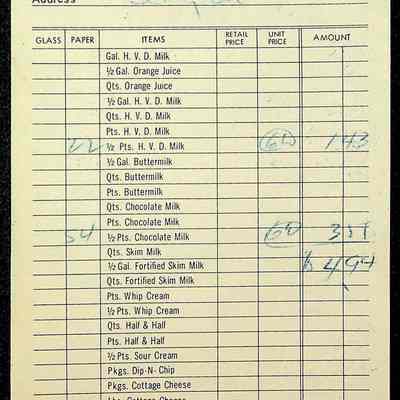 Address
GLASS PAPER ITEMS RETAIL PRICE UNIT PRICE AMOUNT
Gal. H. V. D. Milk
½ Gal. Orange Juice
Qts. Orange Juice
½ Gal. H. V. D. Milk
Qts. H. V. D. Milk
Pts. H. V. D. Milk
22 ½ Pts. H. V. D. Milk 143
½ Gal. Buttermilk
Qts. Buttermilk
Pts. Buttermilk
Qts. Chocolate Milk
Pts. Chocolate Milk
54 ½ Pts. Chocolate Milk 351
Qts. Skim Milk
½ Gal. Fortified Skim Milk $ 494
Qts. Fortified Skim Milk
Pts. Whip Cream
½ Pts. Whip Cream
Qts. Half & Half
Pts. Half & Half
½ Pts. Sour Cream
Pkgs. Dip-N-Chip
Pkgs. Cottage Cheese
Cottage Cheese